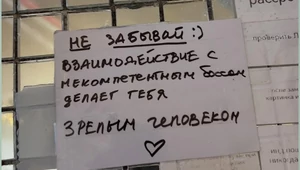 рассро
проверить П
НЕ ЗАБЫВАЙ :)
ВЗАИМОДЕЙСТВИЕ С
НЕКОМПЕТЕНТНЫМ боссом
ДЕЛАЕТ ТЕБЯ
ЗРЕЛЫМ ЧЕЛОВЕКОМ
♡